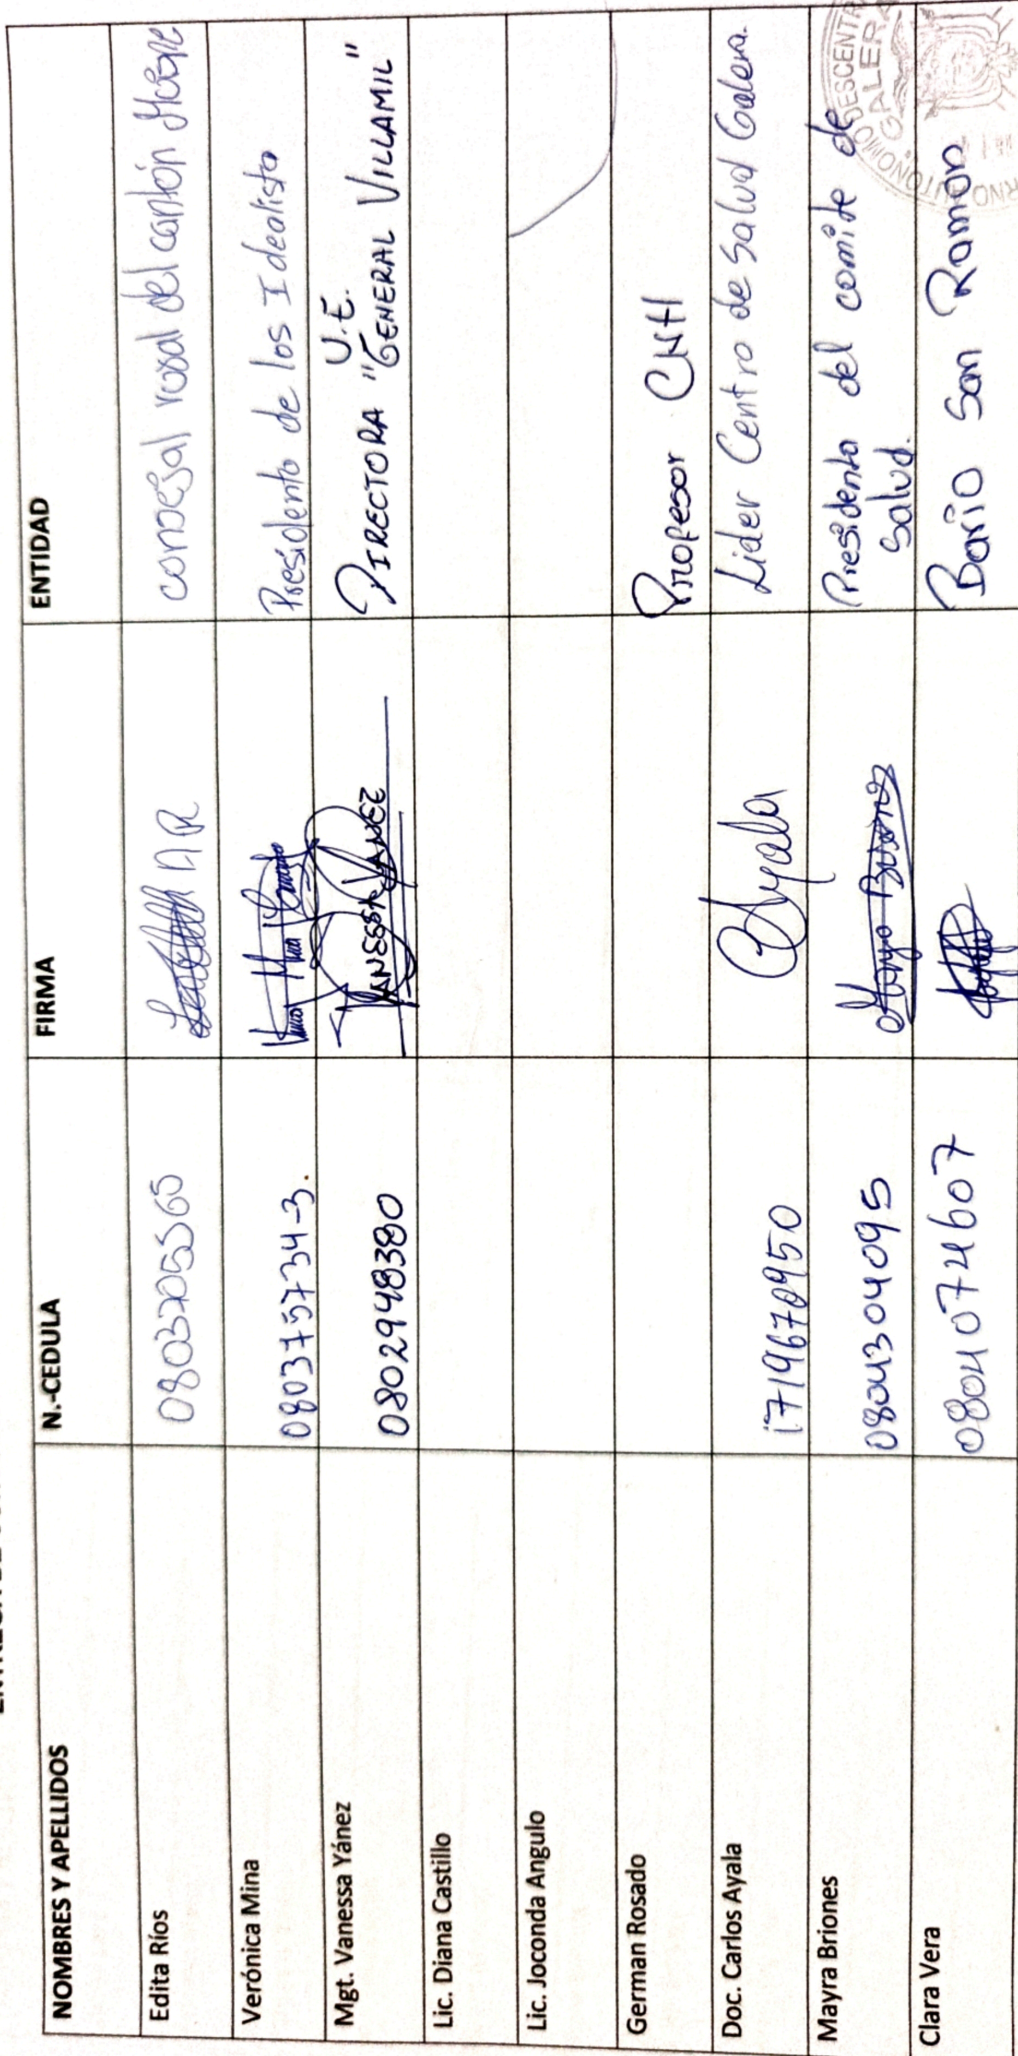 NOMBRES Y APELLIDOS N.-CEDULA FIRMA ENTIDAD
Edita Ríos 0803205565 AR consejal rural del cantón
Verónica Mina 080375734-3. Presidenta de los Idealista
Mgt. Vanessa Yánez 0802948380 VANESSA YANEZ DIRECTORA U.E. "GENERAL VILLAMIL"
Lic. Diana Castillo
Lic. Joconda Angulo
German Rosado Profesor CNH
Doc. Carlos Ayala 1719670950 CAyala Lider Centro de Salud Galera.
Mayra Briones 0804304095 Mayra Briones Presidenta del comite de
Salud.
Clara Vera 0804074607 Bario San Ramon
GALERA